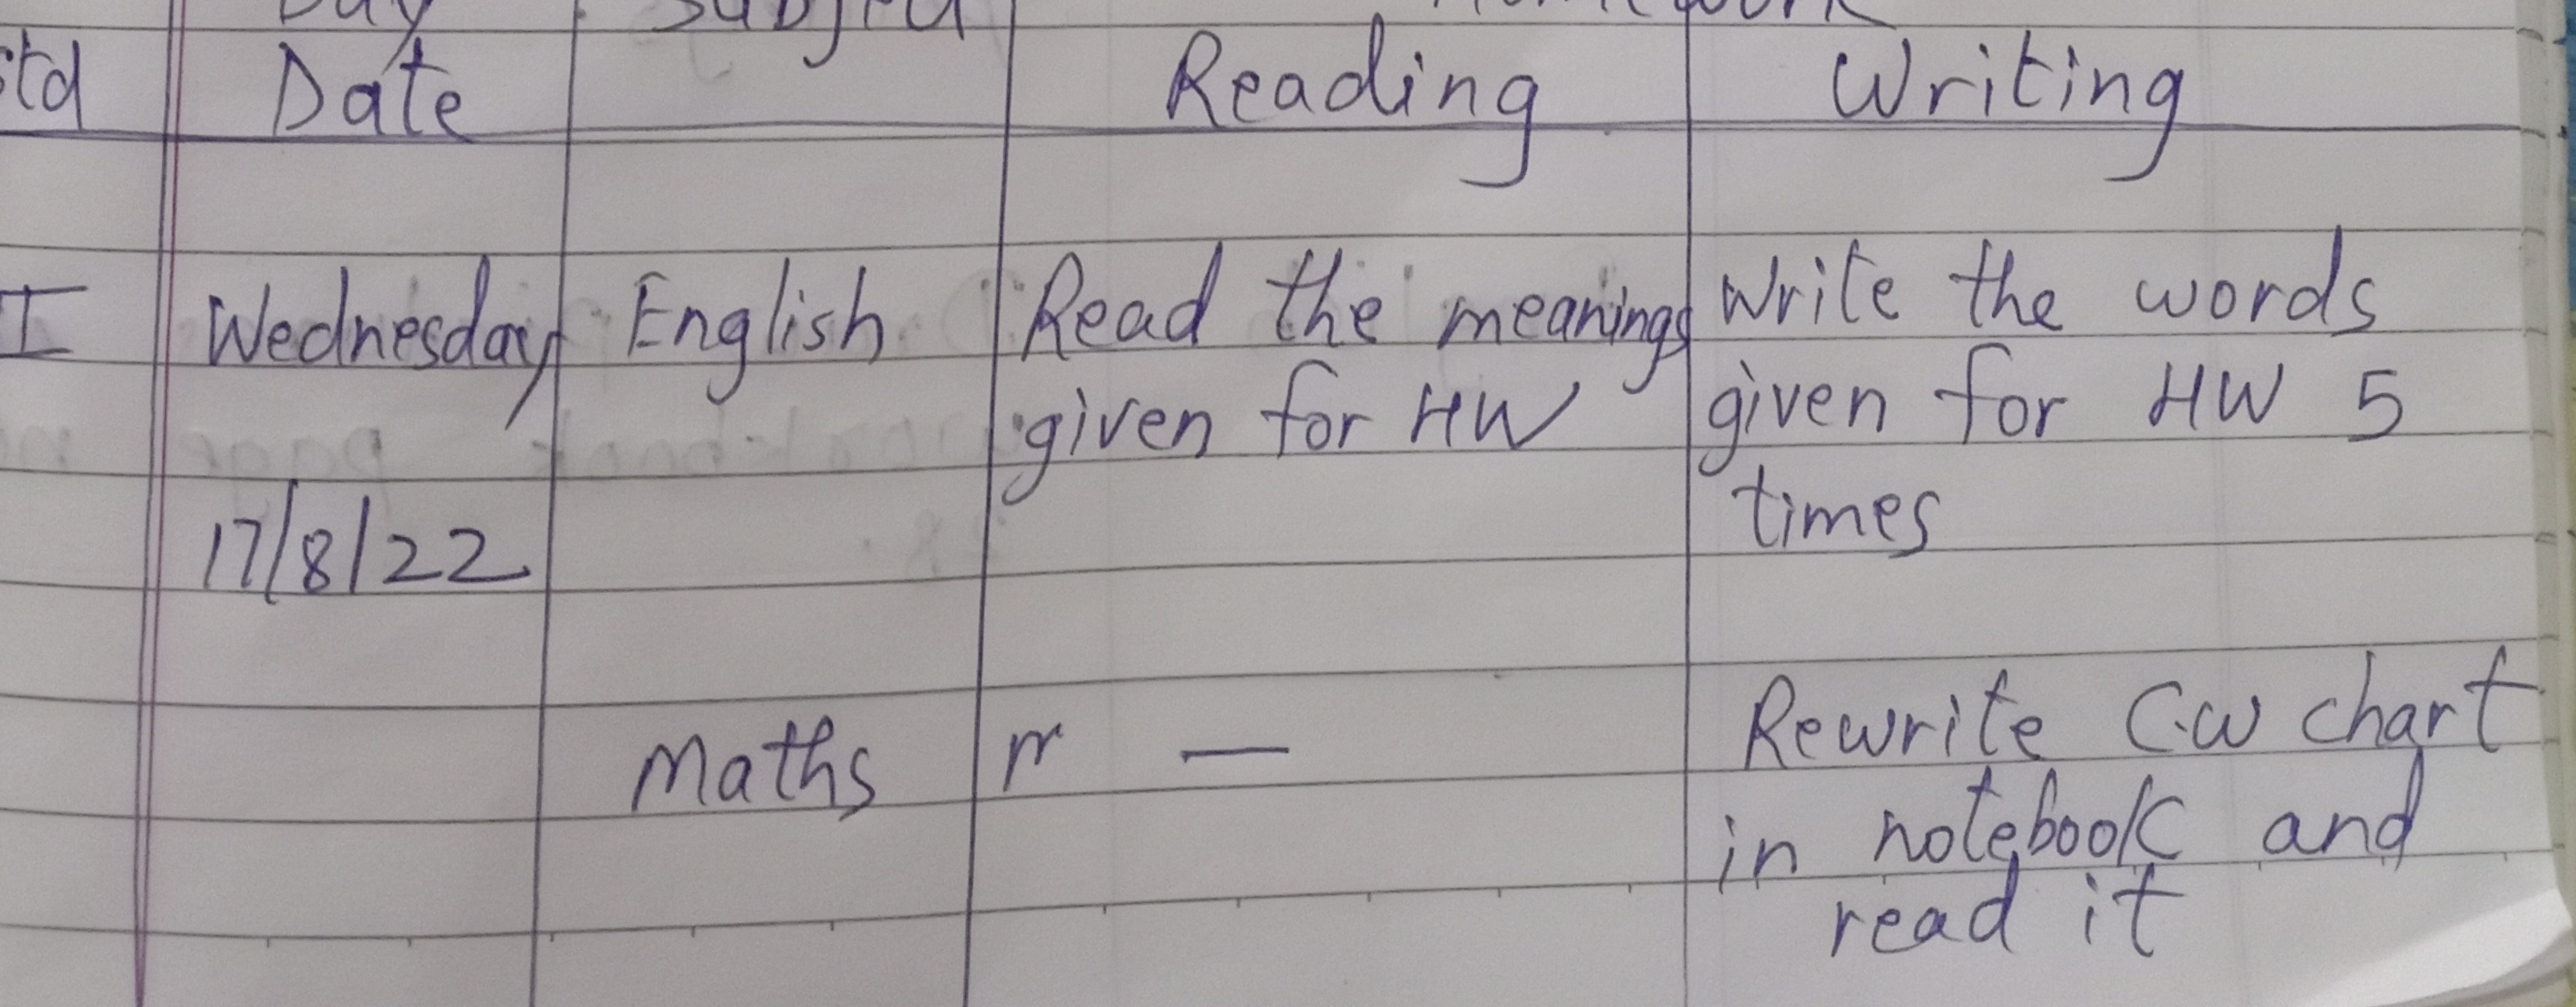 Day Subject Homework
Std Date Reading Writing
I Wednesday English Read the meanings Write the words
given for HW given for HW 5
17/8/22 times
Maths — Rewrite C.W chart
in notebook and
read it